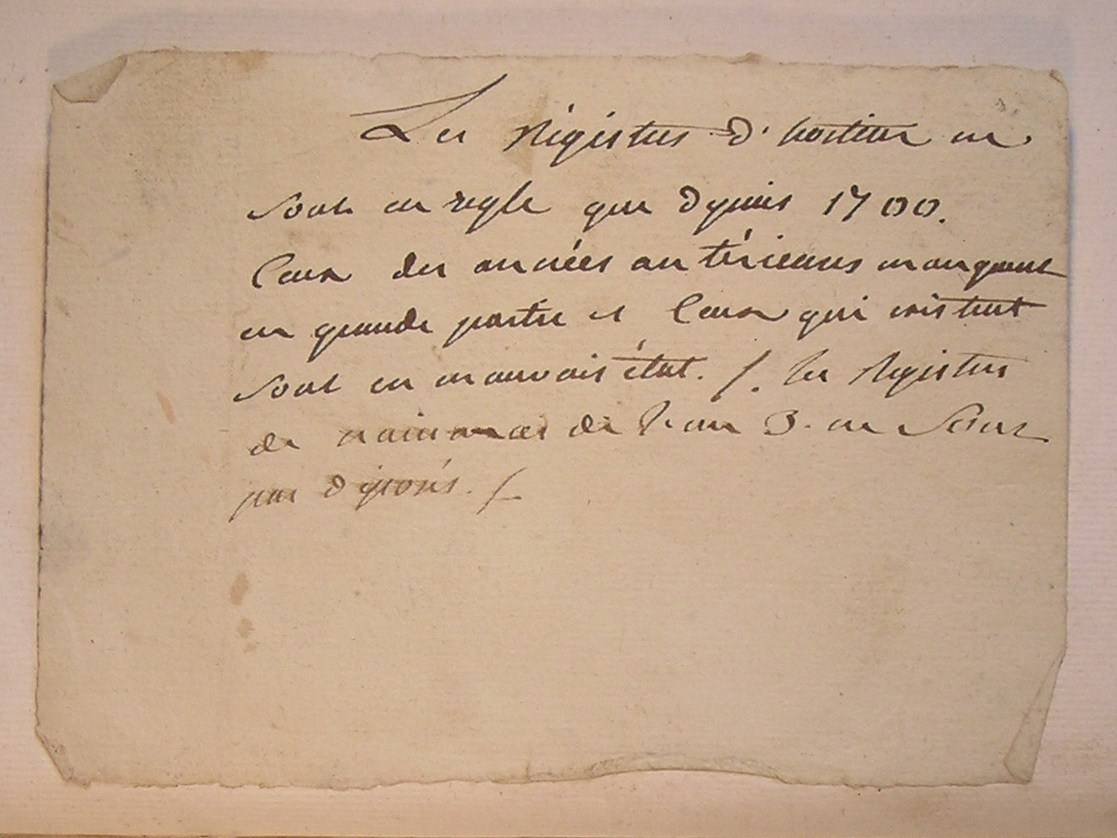 Les Régistres d'hostiun ne
sont en regle que depuis 1700.
Ceux des années antérieures manquent
en grande partie et Ceux qui existent
sont en mauvais état. /. les Registres
de naissances de l'an 3. ne Sont
pas déposés. /